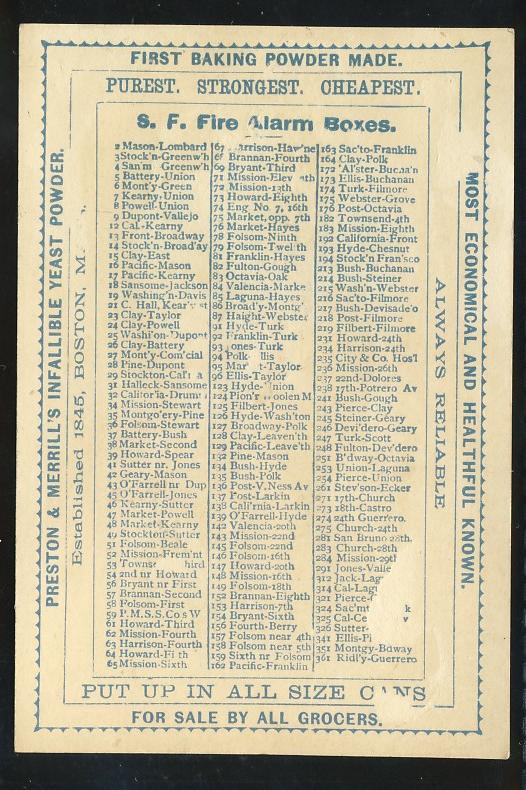 FIRST BAKING POWDER MADE.
PUREST. STRONGEST. CHEAPEST.
PRESTON & MERRILL'S INFALLIBLE YEAST POWDER.
Established 1845, BOSTON,
MOST ECONOMICAL AND HEALTHFUL KNOWN.
ALWAYS RELIABLE
S. F. Fire Alarm Boxes.
2 Mason-Lombard
3 Stock'n-Greenw'h
4 San'm Greenw'h
5 Battery-Union
6 Mont'y-Green
7 Kearny-Union
8 Powell-Union
9 Dupont-Vallejo
12 Cal.-Kearny
13 Front-Broadway
14 Stock'n-Broad'ay
15 Clay-East
16 Pacific-Mason
17 Pacific-Kearny
18 Sansome-Jackson
19 Washing'n-Davis
21 C. Hall,
23 Clay-Taylor
24 Clay-Powell
25 Washi'on-Dupont
26 Clay-Battery
27 Mont'y-Com'cial
28 Pine-Dupont
29 Stockton-
31 Halleck-Sansome
32
34 Mission-Stewart
35 Montgo'ery-Pine
36 Folsom-Stewart
37 Battery-Bush
38 Market-Second
39 Howard-Spear
41 Sutter nr. Jones
42 Geary-Mason
43 O'Farrell nr Dup
45 O'Farrell-Jones
46 Kearny-Sutter
47 Market-Powell
48 Market-Kearny
49 Stockton-Sutter
51 Folsom-Beale
52 Mission-Frem'nt
53
54 2nd nr Howard
56 Bryant nr First
57 Brannan-Second
58 Folsom-First
59 P.M.S.S.Co's W
61 Howard-Third
62 Mission-Fourth
63 Harrison-Fourth
64
65 Mission-Sixth
67
Brannan-Fourth
69 Bryant-Third
71
72 Mission-13th
73 Howard-Eighth
74 Eng No. 7, 16th
75 Market, opp. 7th
76 Market-Hayes
78 Folsom-Ninth
79 Folsom-Twelfth
81 Franklin-Hayes
82 Fulton-Gough
83 Octavia-Oak
84 Valencia-Marke
85 Laguna-Hayes
86 Broad'y-Montg'
87 Haight-Webster
91 Hyde-Turk
92 Franklin-Turk
93
94
95
96 Ellis-Taylor
123
124
125 Filbert-Jones
126 Hyde-Wash'ton
127 Broadway-Polk
128 Clay-Leaven'th
129 Pacific-Leave'th
132 Pine-Mason
134 Bush-Hyde
135 Bush-Polk
136 Post-V.Ness Av
137 Post-Larkin
138 Calif'rnia-Larkin
139 O'Farrell-Hyde
142 Valencia-20th
143 Mission-22nd
145 Folsom-22nd
146 Folsom-16th
147 Howard-20th
148 Mission-16th
149 Folsom-18th
152 Brannan-Eighth
153 Harrison-7th
154 Bryant-Sixth
156 Fourth-Berry
157 Folsom near 4th
158 Folsom near 5th
159 Sixth nr Folsom
162 Pacific-Franklin
163 Sac'to-Franklin
164 Clay-Polk
172
173 Ellis-Buchanan
174 Turk-Filmore
175 Webster-Grove
176 Post-Octavia
182 Townsend-4th
183 Mission-Eighth
192 California-Front
193 Hyde-Chesnut
194 Stock'n Fran'sco
213 Bush-Buchanan
214 Bush-Steiner
215 Wash'n-Webster
216 Sac'to-Filmore
217 Bush-Devisade'o
218 Post-Filmore
219 Filbert-Filmore
231 Howard-24th
234 Harrison-24th
235 City & Co. Hos'l
236 Mission-26th
237 22nd-Dolores
238 17th-Potrero Av
241 Bush-Gough
243 Pierce-Clay
245 Steiner-Geary
246 Devi'dero-Geary
247 Turk-Scott
248 Fulton-Dev'dero
251 B'dway-Octavia
253 Union-Laguna
254 Pierce-Union
261 Stev'son-Ecker
271 17th-Church
273 18th-Castro
274 24th Guerrero.
275 Church-24th
281 San Bruno 28th.
283 Church-28th
284 Mission-29th
291 Jones-
312
314
321
324
325
326 Sutter-
341
351 Montgy-Bdway
361 Ridl'y-Guerrero
PUT UP IN ALL SIZE
FOR SALE BY ALL GROCERS.